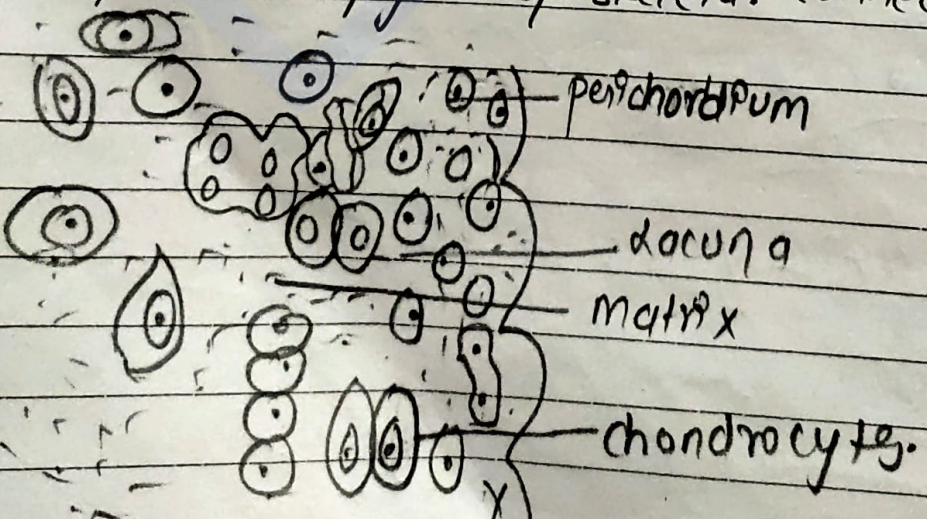 perichordium
Lacuna
matrix
chondrocytes.